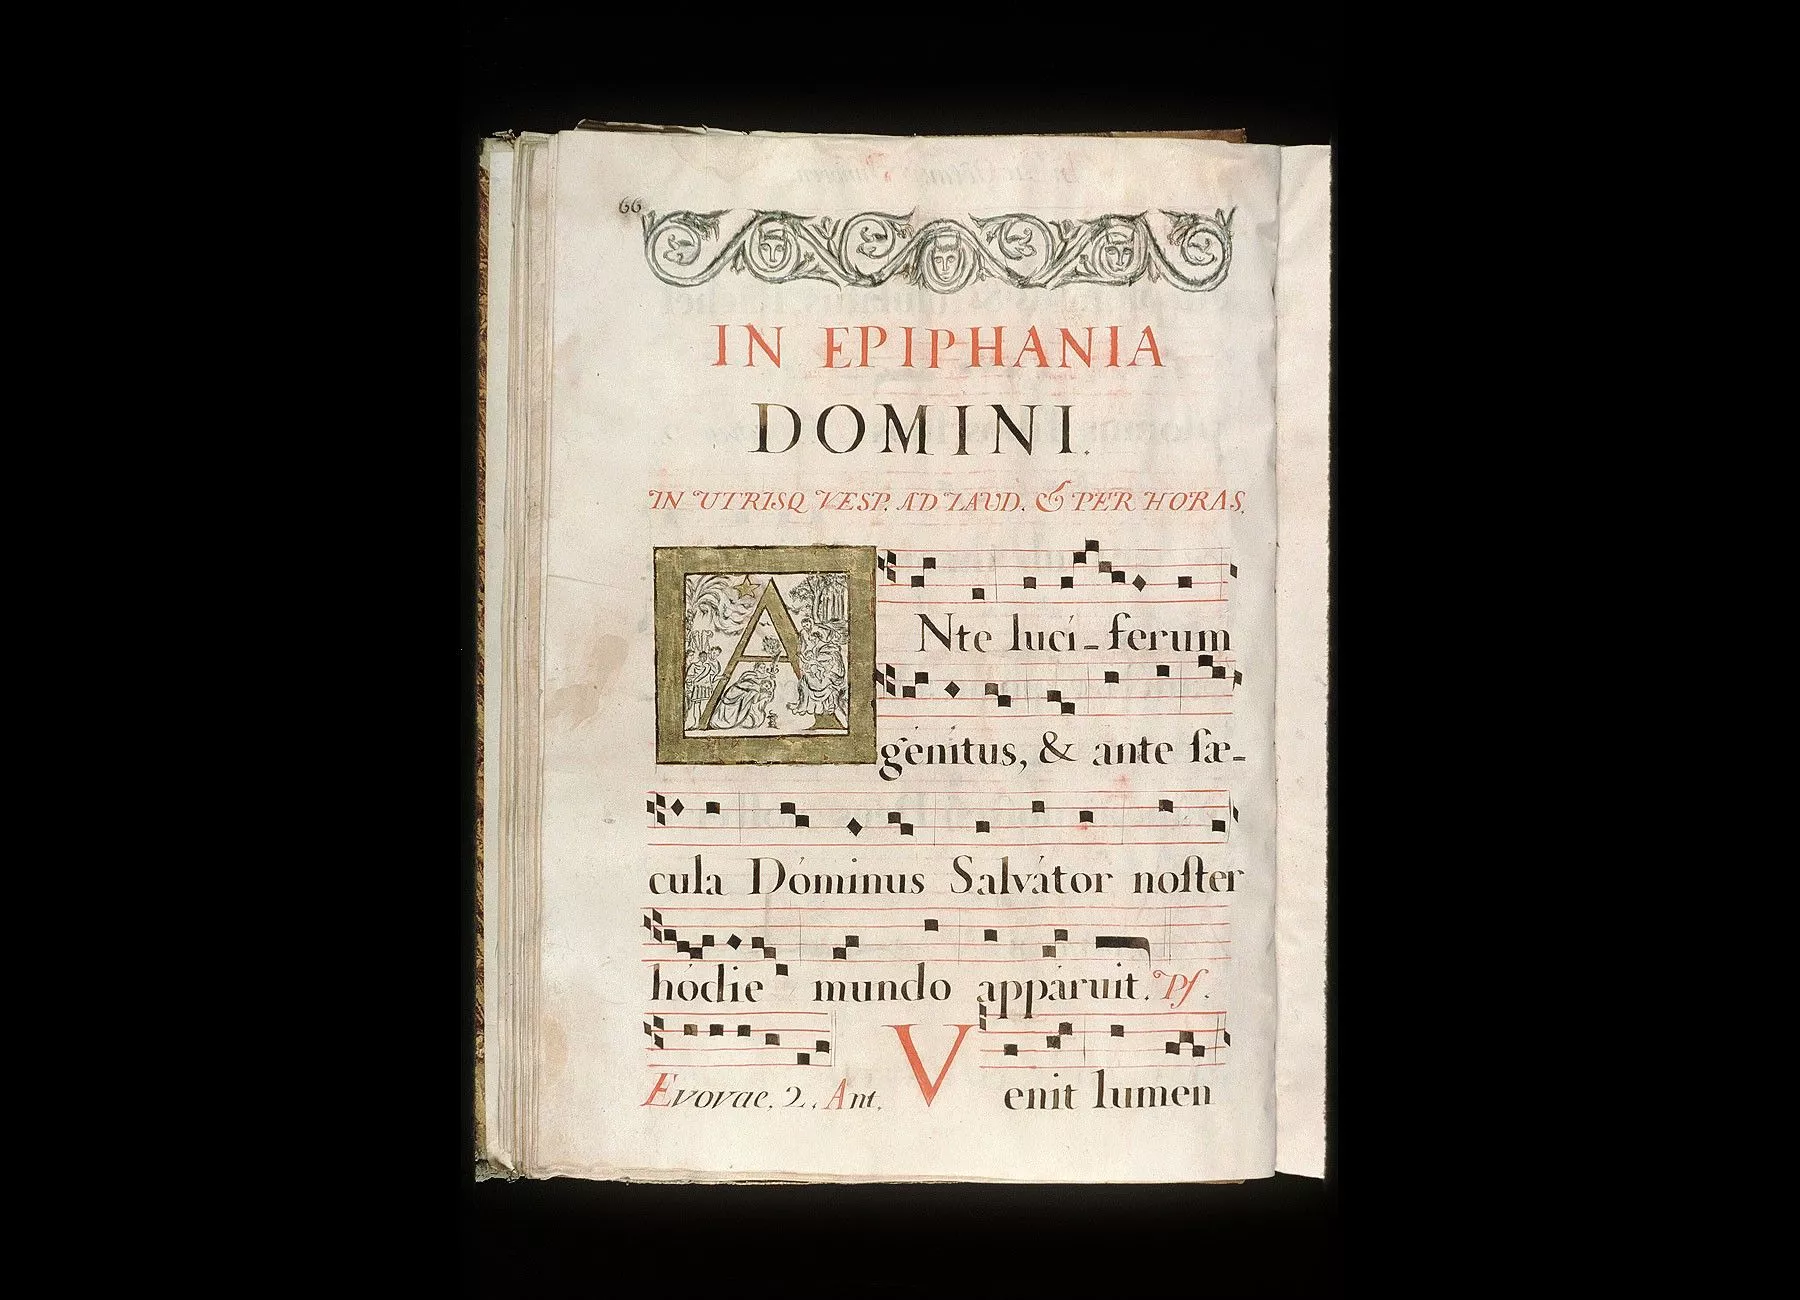 66
IN EPIPHANIA
DOMINI.
IN UTRISQ VESP. AD LAUD. & PER HORAS.
ANte lucí-ferum
génitus, & ante sæ-
cula Dóminus Salvátor noster
hódie mundo appáruit. Ps.
Evovae. 2. Ant. Venit lumen